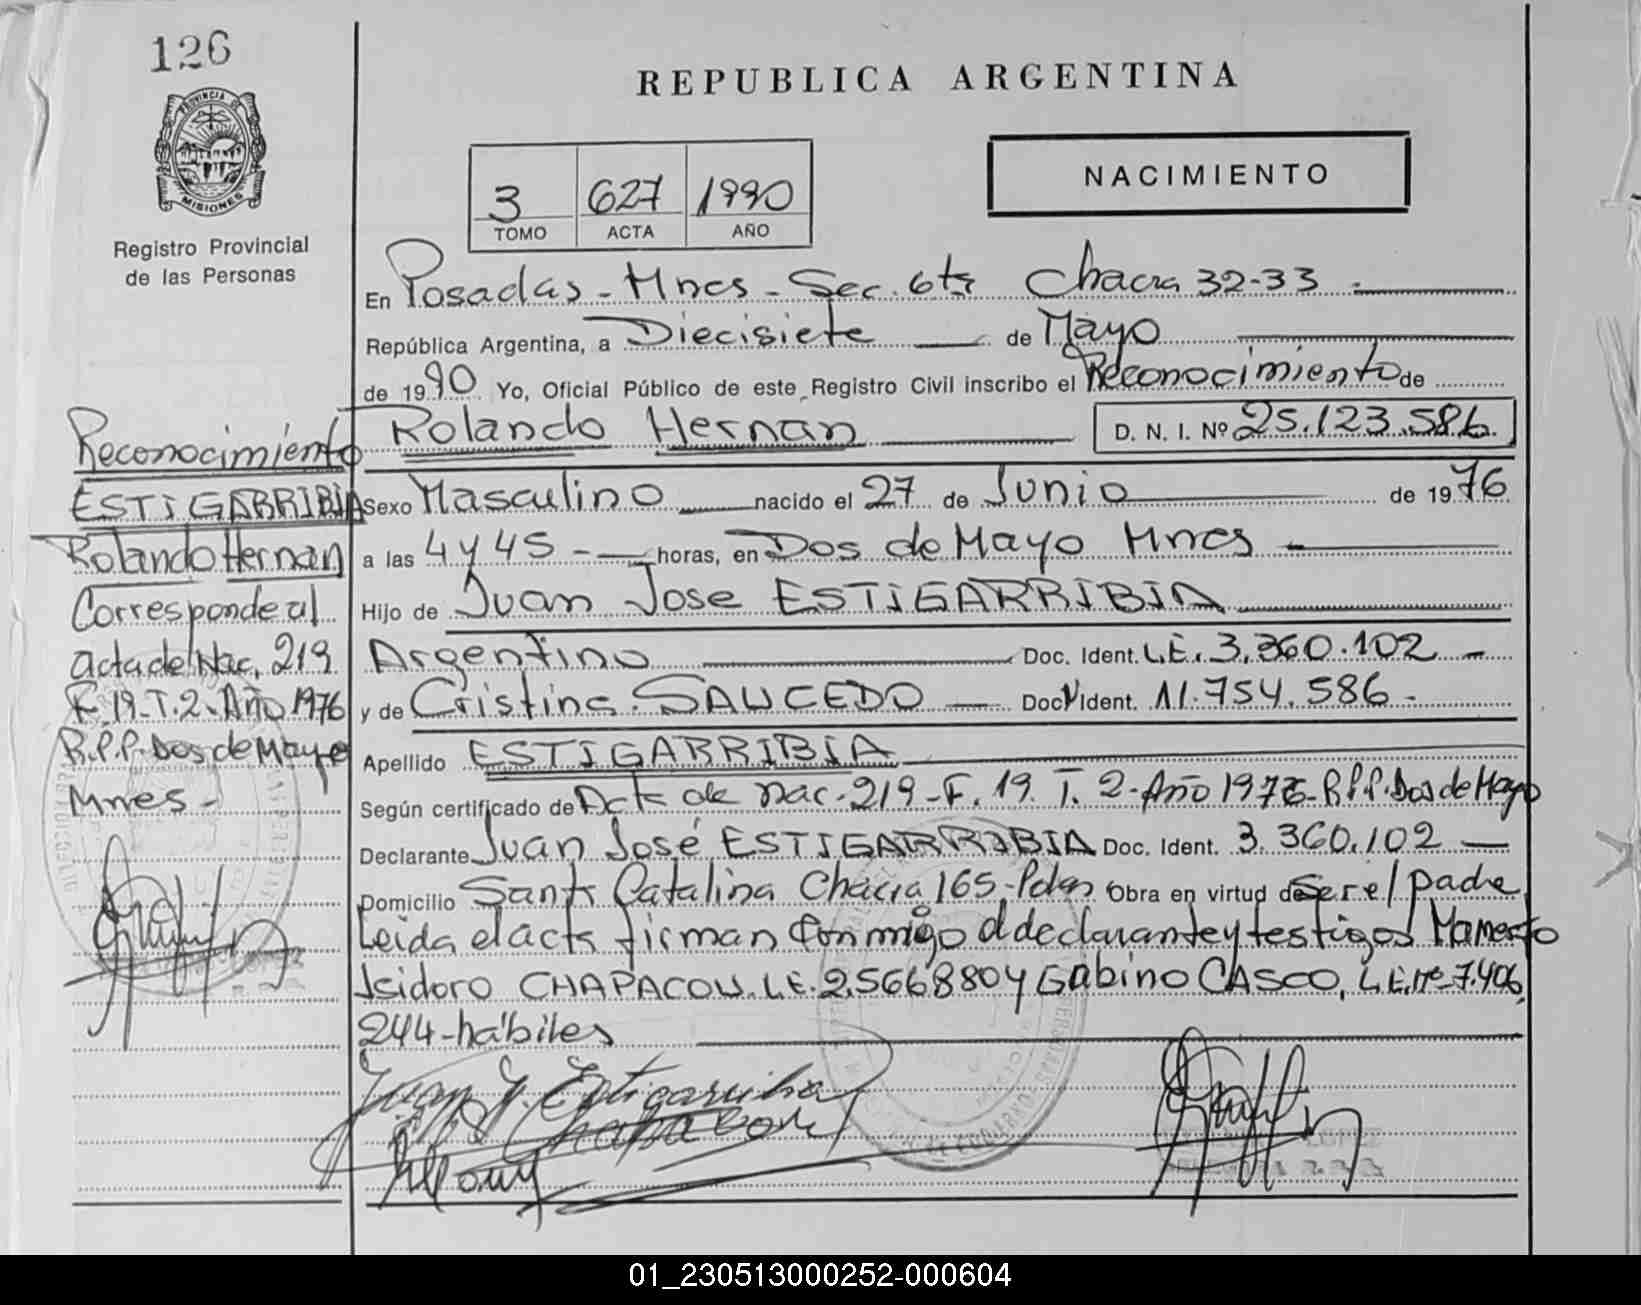 126
PROVINCIA DE
MISIONES
Registro Provincial
de las Personas
REPUBLICA ARGENTINA
3 627 1990
TOMO ACTA AÑO
NACIMIENTO
En Posadas - Mnes - Sec. 6ta Chacra 32-33
República Argentina, a Diecisiete de Mayo
de 1990 Yo, Oficial Público de este Registro Civil inscribo el Reconocimiento de
Rolando Hernan D. N. I. Nº 25.123.586
Sexo Masculino nacido el 27 de Junio de 1976
a las 4 y 45 - horas, en Dos de Mayo Mnes
Hijo de Juan Jose ESTIGARRIBIA
Argentino Doc. Ident. L.E. 3.360.102
y de Cristina SAUCEDO Doc. Ident. 11.754.586
Apellido ESTIGARRIBIA
Según certificado de Acta de Nac. 219 - F. 19. T. 2 - Año 1976 - R.P.P. Dos de Mayo
Declarante Juan José ESTIGARRIBIA Doc. Ident. 3.360.102
Domicilio Santa Catalina Chacra 165 - Pdas Obra en virtud de Ser el padre
Leida el acta firman conmigo el declarante y testigos Mamerto
Isidoro CHAPACOU. L.E. 2.566.880 y Gabino CASCO, L.E. Nº 7.406.
244 - hábiles
Reconocimiento
ESTIGARRIBIA
Rolando Hernan
Corresponde al
acta de Nac. 219
F. 19 - T. 2 - Año 1976
R.P.P. Dos de Mayo
Mnes -
Juan J. Estigarribia
01_230513000252-000604